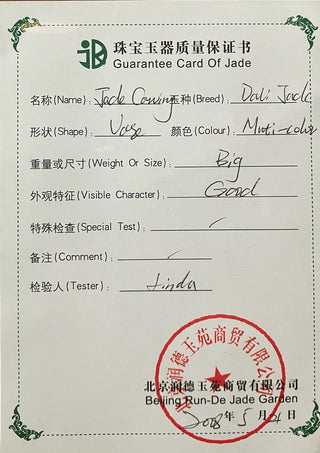 珠宝玉器质量保证书
Guarantee Card Of Jade
名称(Name): Jade Carving 玉种(Breed): Dali Jade
形状(Shape): Vase 颜色(Colour): Muti-color
重量或尺寸(Weight Or Size): Big
外观特征(Visible Character): Good
特殊检查(Special Test):
备注(Comment):
检验人(Tester): Linda
北京润德玉苑商贸有限公司
北京润德玉苑商贸有限公司
Beijing Run-De Jade Garden
2008年5月21日